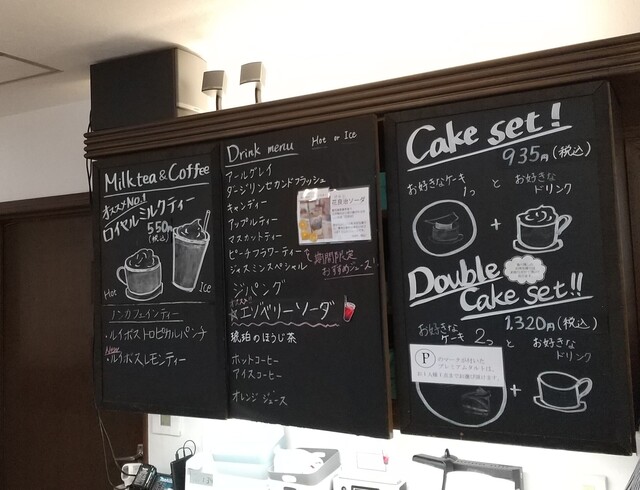 Milktea & Coffee
オススメNo.1
ロイヤルミルクティー
550円
(税込)
Hot
Ice
ノンカフェインティー
・ルイボストロピカルパンチ
New
・ルイボスレモンティー
Drink menu
Hot or Ice
アールグレイ
ダージリンセカンドフラッシュ
キャンディー
アップルティー
マスカットティー
ピーチフラワーティー
ジャスミンスペシャル
期間限定
おすすめジュース!
ジパング
オススメ!!
☆エゾベリーソーダ
琥珀のほうじ茶
ホットコーヒー
アイスコーヒー
オレンジジュース
Cake set!
935円(税込)
お好きなケーキ
1つ
と
お好きな
ドリンク
+
Double
Cake set!!
1,320円(税込)
お好きな
ケーキ 2つ
と
お好きな
ドリンク
P
のマークが付いた
プレミアムタルトは、
お1人様1点までお選び頂けます。
+